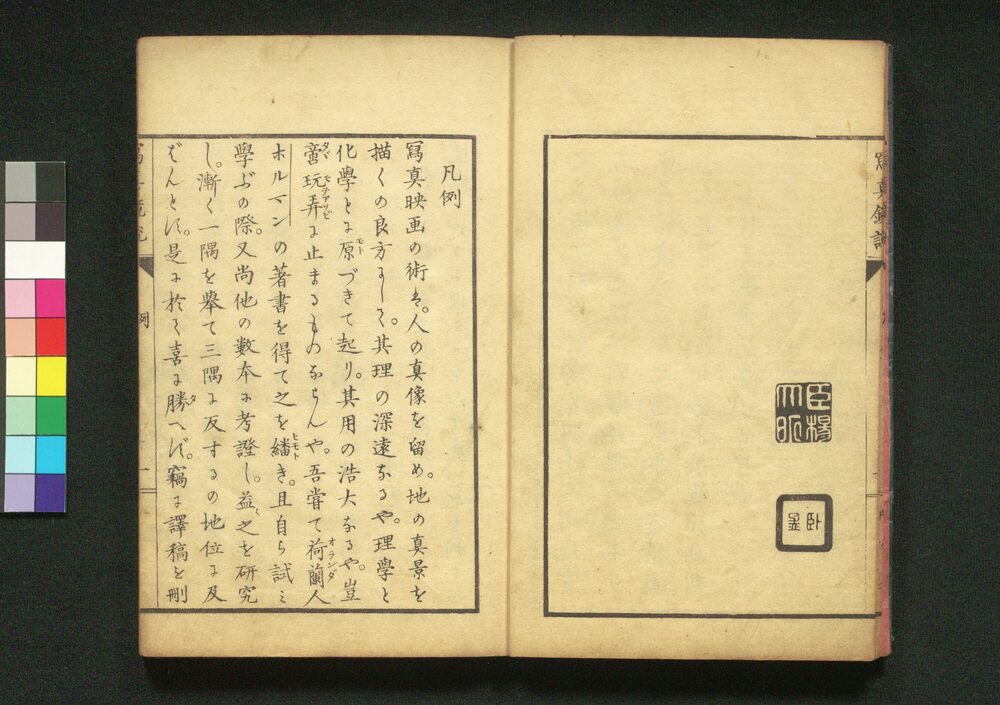 寫真鏡説
臣楊
凡例
寫真映画の術は。人の真像を留め。地の真景を
描くの良方にして。其理の深遠なるや。理學と
化學とに原づきて起り。其用の浩大なるや。豈
モト
啻玩弄に止まるものならんや。吾甞て荷蘭人
タヾ モテアソビ オランダ
ホルマンの著書を得て之を繙き。且自ら試ミ
ヒモト
學ぶの際。又尚他の數本に考證し。益〻之を研究
し。漸く一隅を擧て三隅に反するの地位に及
ばんとす。是に於て喜に勝へず。竊に譯稿を刪
タ
例
一